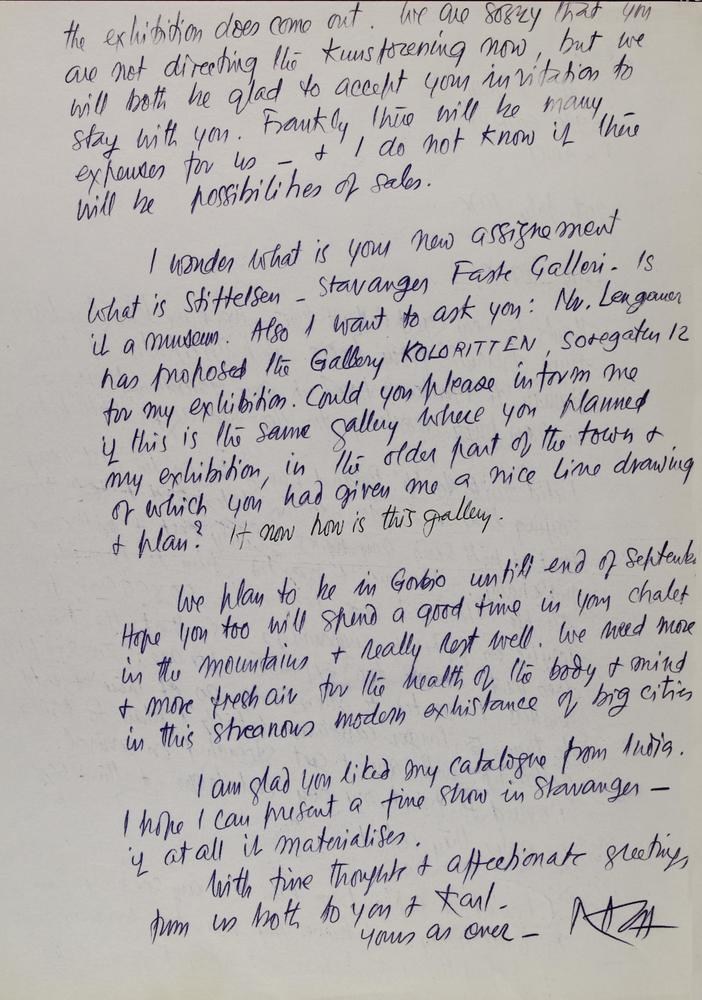 the exhibition does come out. We are sorry that you
are not directing the Kunstforening now, but we
will both be glad to accept your invitation to
stay with you. Frankly there will be many
expenses for us – & I do not know if there
will be possibilities of sales.
I wonder what is your new assignement
What is Stiftelsen – Stavanger Faste Galleri. Is
it a museum. Also I want to ask you: Mr. Lengauer
has proposed the Gallery KOLORITTEN, Søregaten 12
for my exhibition. Could you please inform me
if this is the same gallery where you planned
my exhibition, in the older part of the town &
of which you had given me a nice line drawing
& plan? & now how is this gallery.
We plan to be in Gorbio untill end of September
Hope you too will spend a good time in your chalet
in the mountains & really rest well. We need more
& more fresh air for the health of the body & mind
in this streanous modern exhistance of big cities
I am glad you liked my catalogue from India.
I hope I can present a fine show in Stavanger –
if at all it materialises.
With fine thoughts & affectionate greetings
from us both to you & Karl.
Yours as ever –